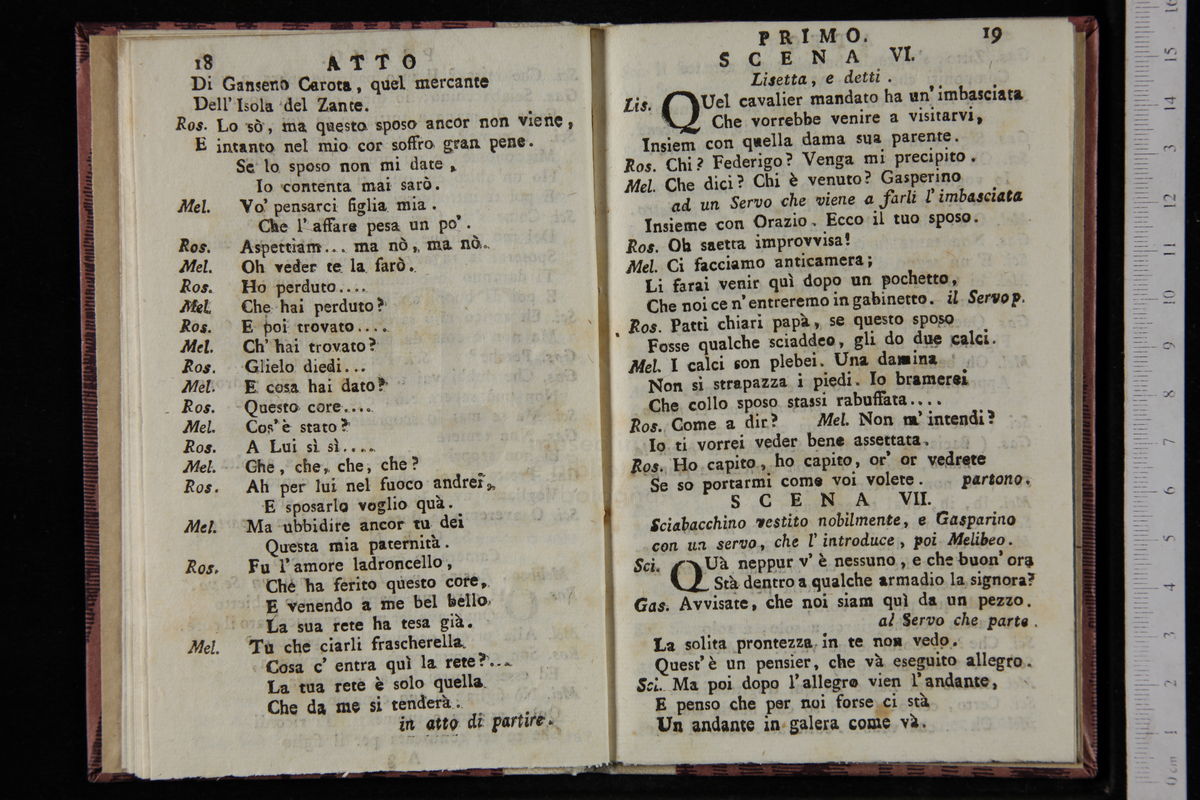 18 ATTO
Di Ganseno Carota, quel mercante
Dell' Isola del Zante.
Ros. Lo sò, ma questo sposo ancor non viene,
E intanto nel mio cor soffro gran pene.
Se lo sposo non mi date,
Io contenta mai sarò.
Mel. Vo' pensarci figlia mia.
Che l' affare pesa un po'.
Ros. Aspettiam... ma nò, ma nò.
Mel. Oh veder te la farò.
Ros. Ho perduto....
Mel. Che hai perduto?
Ros. E poi trovato....
Mel. Ch' hai trovato?
Ros. Glielo diedi...
Mel. E cosa hai dato?
Ros. Questo core....
Mel. Cos' è stato?
Ros. A Lui sì sì....
Mel. Che, che, che, che?
Ros. Ah per lui nel fuoco andrei,
E sposarlo voglio quà.
Mel. Ma ubbidire ancor tu dei
Questa mia paternità.
Ros. Fu l'amore ladroncello,
Che ha ferito questo core,
E venendo a me bel bello
La sua rete ha tesa già.
Mel. Tu che ciarli frascherella
Cosa c' entra quì la rete?...
La tua rete è solo quella
Che da me si tenderà.
in atto di partire.
PRIMO. 19
SCENA VI.
Lisetta, e detti.
Lis. QUel cavalier mandato ha un' imbasciata
Che vorrebbe venire a visitarvi,
Insiem con quella dama sua parente.
Ros. Chi? Federigo? Venga mi precipito.
Mel. Che dici? Chi è venuto? Gasperino
ad un Servo che viene a farli l' imbasciata
Insieme con Orazio. Ecco il tuo sposo.
Ros. Oh saetta improvvisa!
Mel. Ci facciamo anticamera;
Li farai venir quì dopo un pochetto,
Che noi ce n' entreremo in gabinetto. il Servo p.
Ros. Patti chiari papà, se questo sposo
Fosse qualche sciaddeo, gli do due calci.
Mel. I calci son plebei. Una damina
Non si strapazza i piedi. Io bramerei
Che collo sposo stassi rabuffata....
Ros. Come a dir? Mel. Non m' intendi?
Io ti vorrei veder bene assettata.
Ros. Ho capito, ho capito, or' or vedrete
Se so portarmi come voi volete. partono.
SCENA VII.
Sciabacchino vestito nobilmente, e Gasparino
con un servo, che l' introduce, poi Melibeo.
Sci. QUà neppur v' è nessuno, e che buon' ora
Stà dentro a qualche armadio la signora?
Gas. Avvisate, che noi siam quì da un pezzo.
al Servo che parte.
La solita prontezza in te non vedo.
Quest' è un pensier, che và eseguito allegro.
Sci. Ma poi dopo l'allegro vien l'andante,
E penso che per noi forse ci stà
Un andante in galera come và.